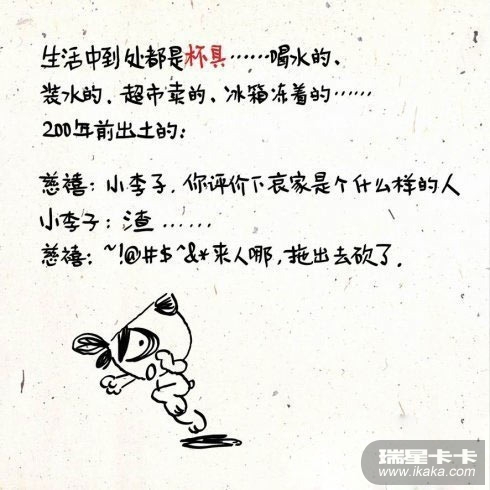 生活中到处都是杯具……喝水的、
装水的、超市卖的、冰箱冻着的……
200年前出土的：
慈禧：小李子，你评价下哀家是个什么样的人
小李子：渣……
慈禧：~!@#$^&*来人哪，拖出去砍了．
瑞星卡卡
www.ikaka.com